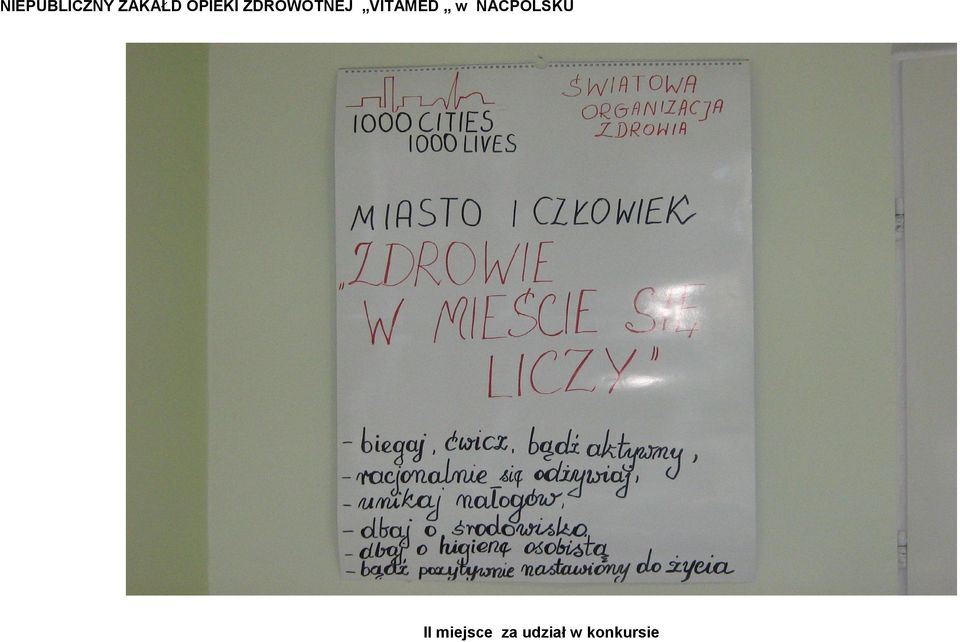 NIEPUBLICZNY ZAKAŁD OPIEKI ZDROWOTNEJ „VITAMED „ w NACPOLSKU
1000 CITIES
1000 LIVES
ŚWIATOWA
ORGANIZACJA
ZDROWIA
MIASTO I CZŁOWIEK
„ZDROWIE
W MIEŚCIE SIĘ
LICZY”
- biegaj, ćwicz, bądź aktywny,
- racjonalnie się odżywiaj,
- unikaj nałogów,
- dbaj o środowisko,
- dbaj o higienę osobistą
- bądź pozytywnie nastawiony do życia
II miejsce za udział w konkursie